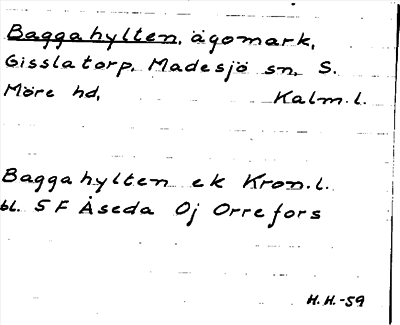 Baggahylten, ägomark,
Gisslatorp, Madesjö sn, S.
Möre hd, Kalm.l.
Baggahylten ek Kron.l.
bl. 5F Åseda Oj Orrefors
H.H.-59